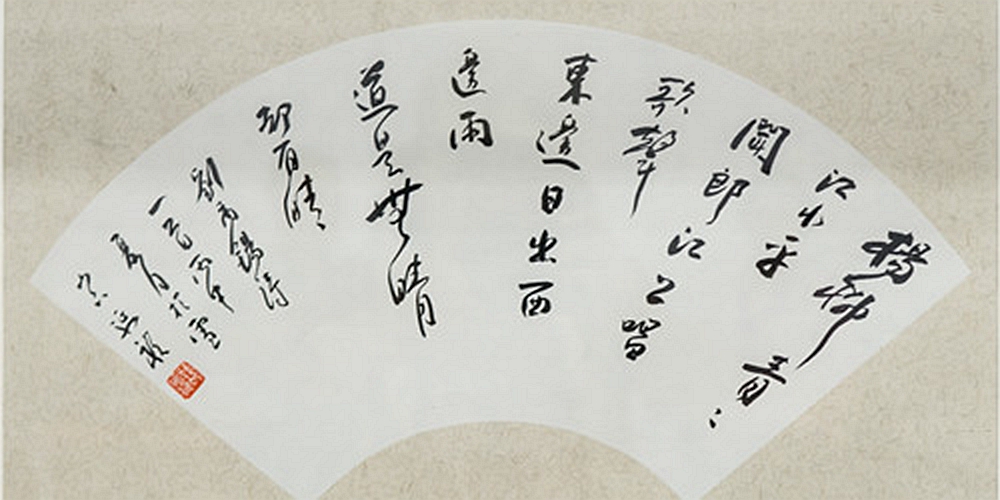 楊柳青〻
江水平
聞郎江上唱
歌聲
東邊日出西
邊雨
道是無晴
却有晴
劉禹錫詩
一首丙申
夏月於